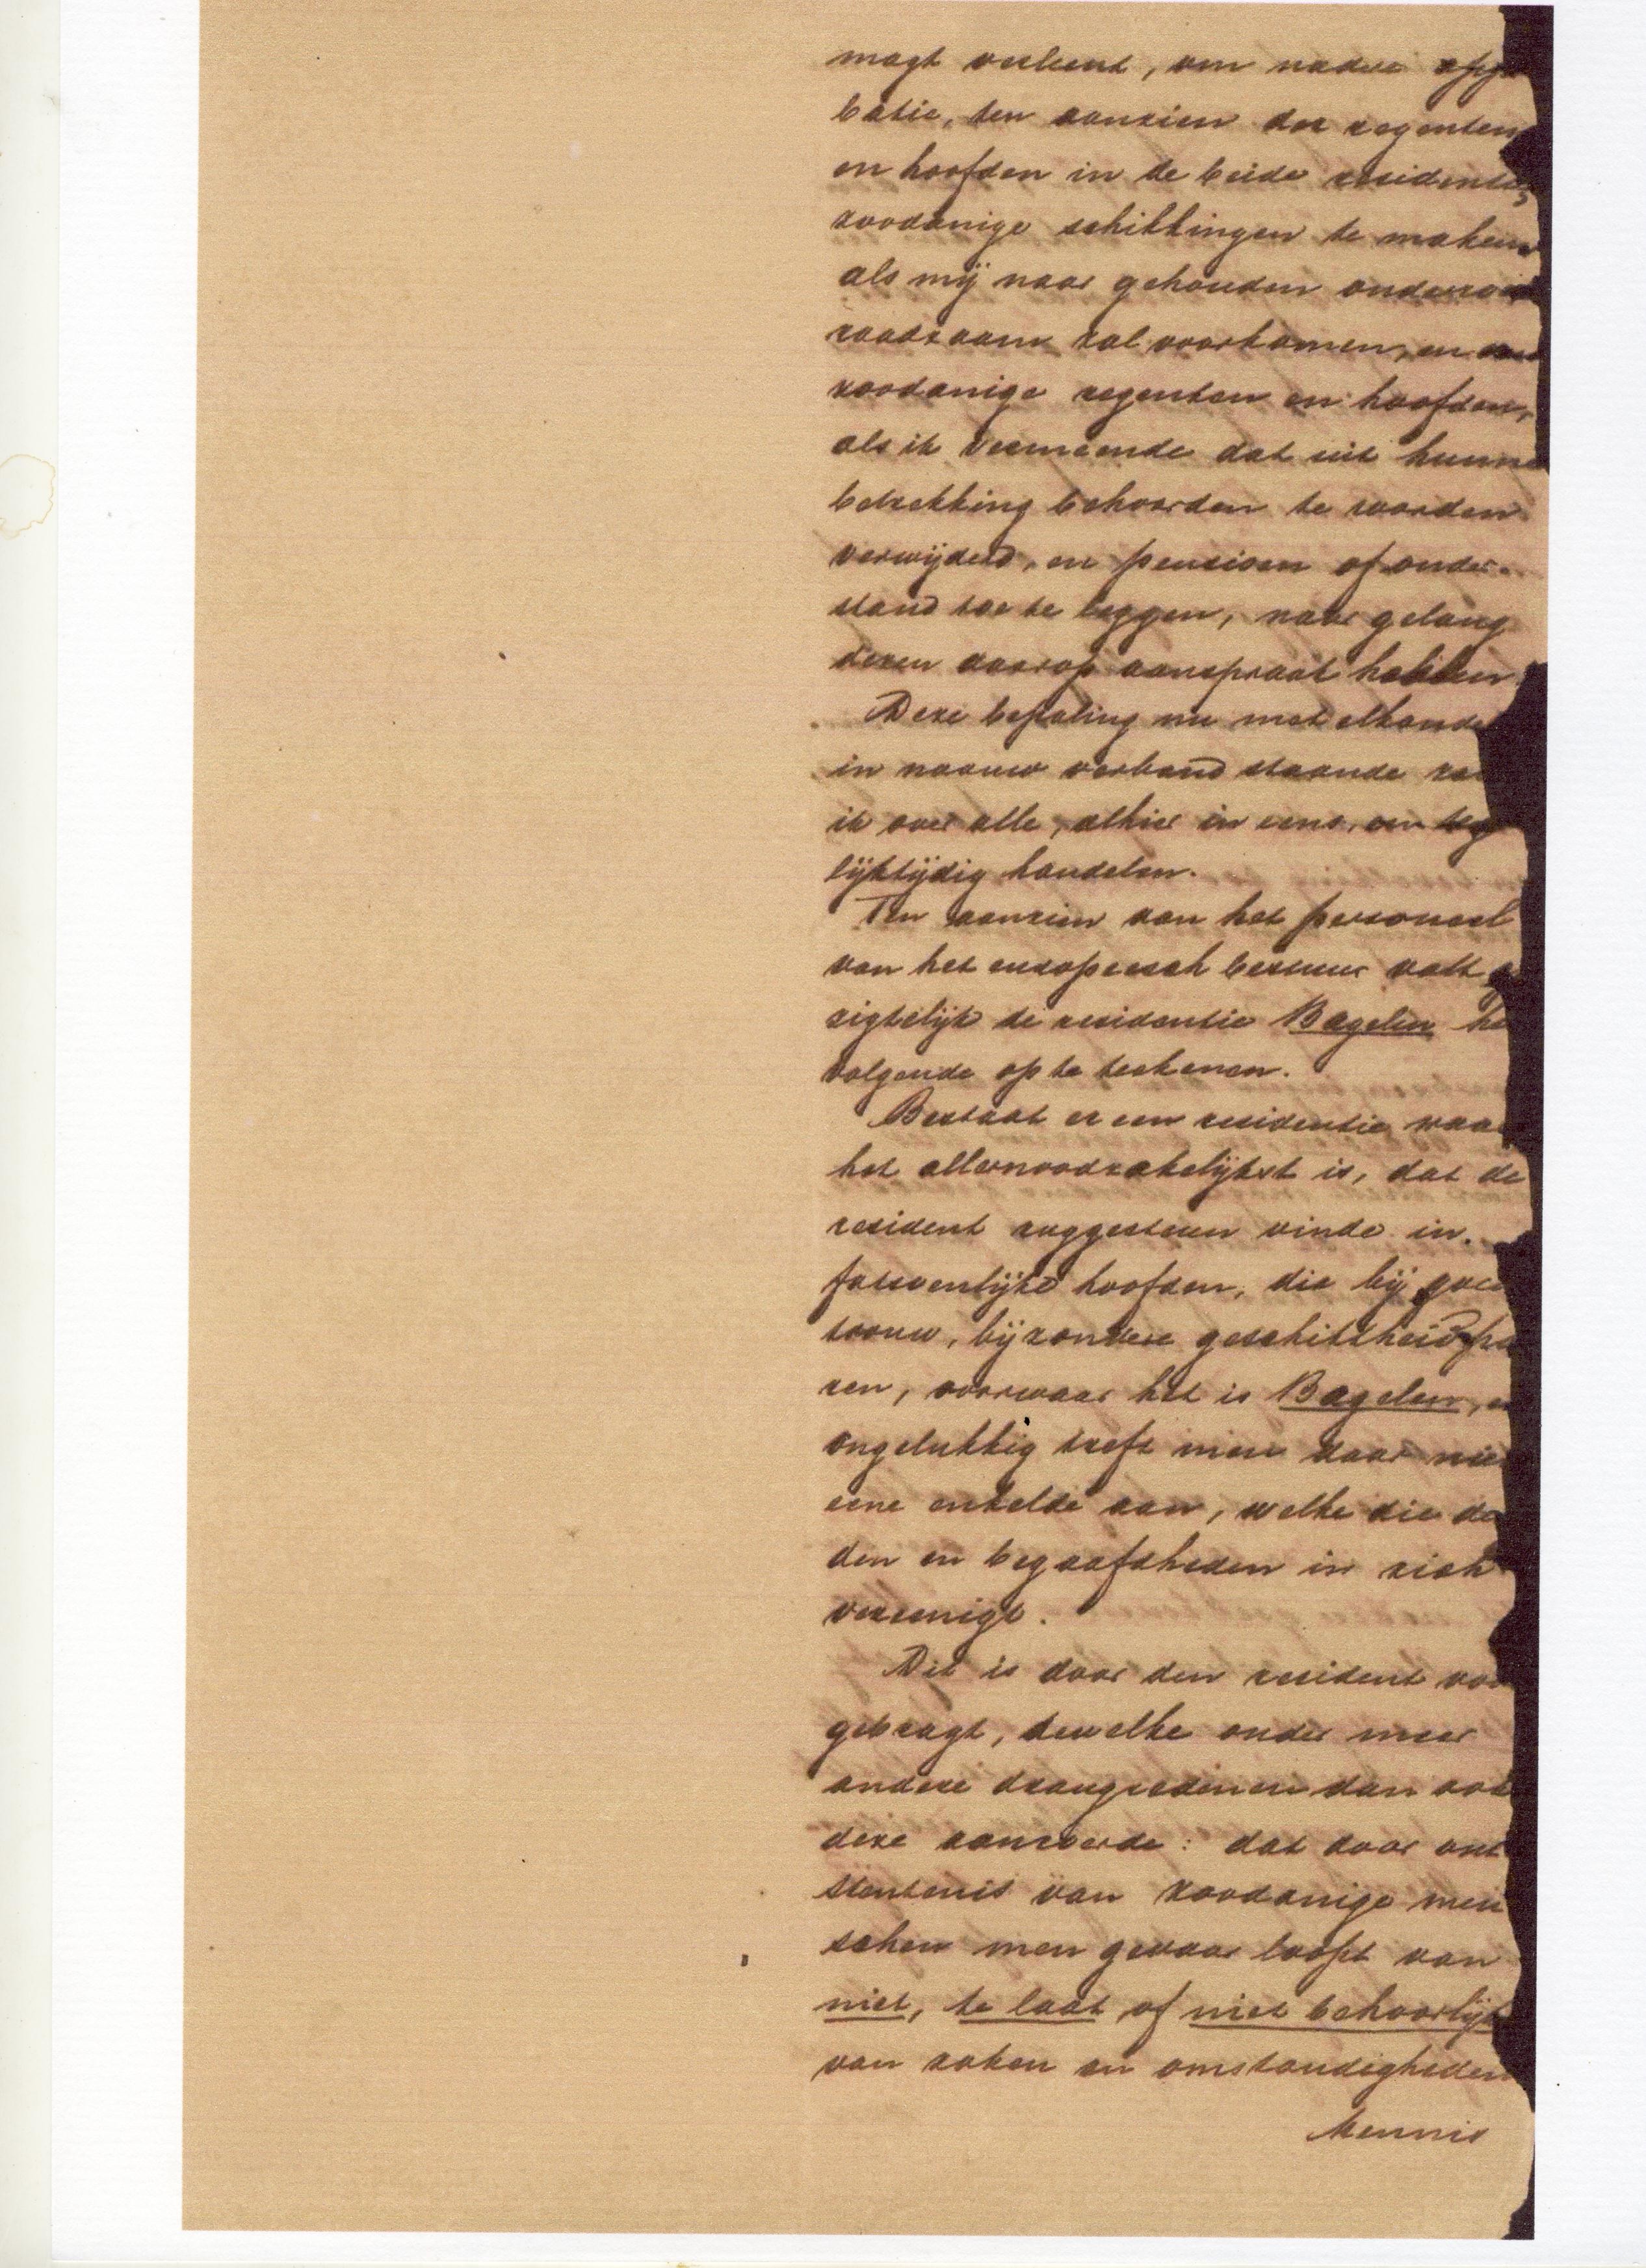 magt verleent, om nadere appr
batie, ten aanzien der regenten
en hoofden in de beide residentie
zoodanige schikkingen te maken
als mij naar gehouden onderzoe
raadzaam zal voorkomen, en
zoodanige regenten en hoofden,
als ik vermeende dat uit hunne
betrekking behoorden te worden
verwijderd, en pensioen of onder-
stand toe te leggen, naar gelang
dezen daarop aanspraak hebben.
Deze bepaling nu met elkande
in naauw verband staande zal
ik over alle, alhier in eens, en
lijktijdig handelen.
Ten aanzien van het personeel
van het europeesch bestuur valt
zigtelijk de residentie Bagelen he
volgende op te teekenen.
Bestaat er een residentie waar
het allernoodzakelijkst is, dat de
resident ruggesteun vinde in
fatsoenlijke hoofden, die bij goed
trouw, bijzondere geschiktheid
ren, voorwaar het is Bagelen, en
ongelukkig treft men daar nie
eene enkelde aan, welke die de
den en begaafdheden in zich
vereenigt.
Dit is door den resident voo
gebragt, dewelke onder meer
andere drangredenen dan ook
deze aanvoerde: dat door ont
stentenis van zoodanige men
schen men gevaar loopt van
niet, te laat of niet behoorlijk
van zaken en omstandigheden
kennis